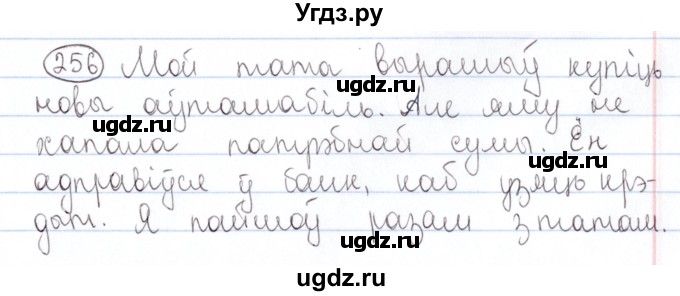 Угдз.ру
256 Мой тата вырашыў купіць
ugdz.ru ugdz.ru
новы аўтамабіль. Але яму не
ugdz.ru
хапала патрэбнай сумы. Ён
ugdz.ru ugdz.ru
адправіўся ў банк, каб узяць крэ-
ugdz.ru
дыт. Я пайшоў разам з татам.
ugdz.ru ugdz.ru